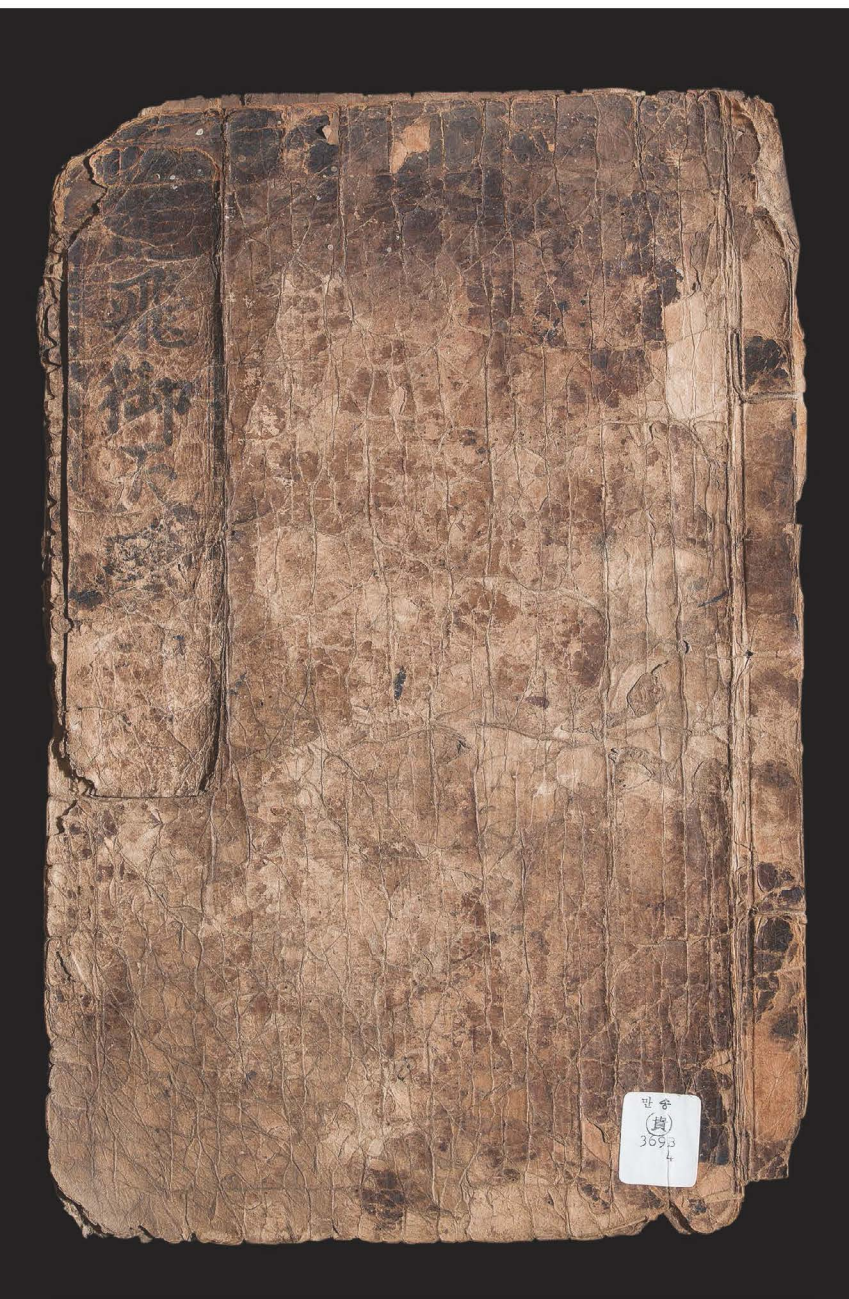 飛御天
만송
貴
3693
4